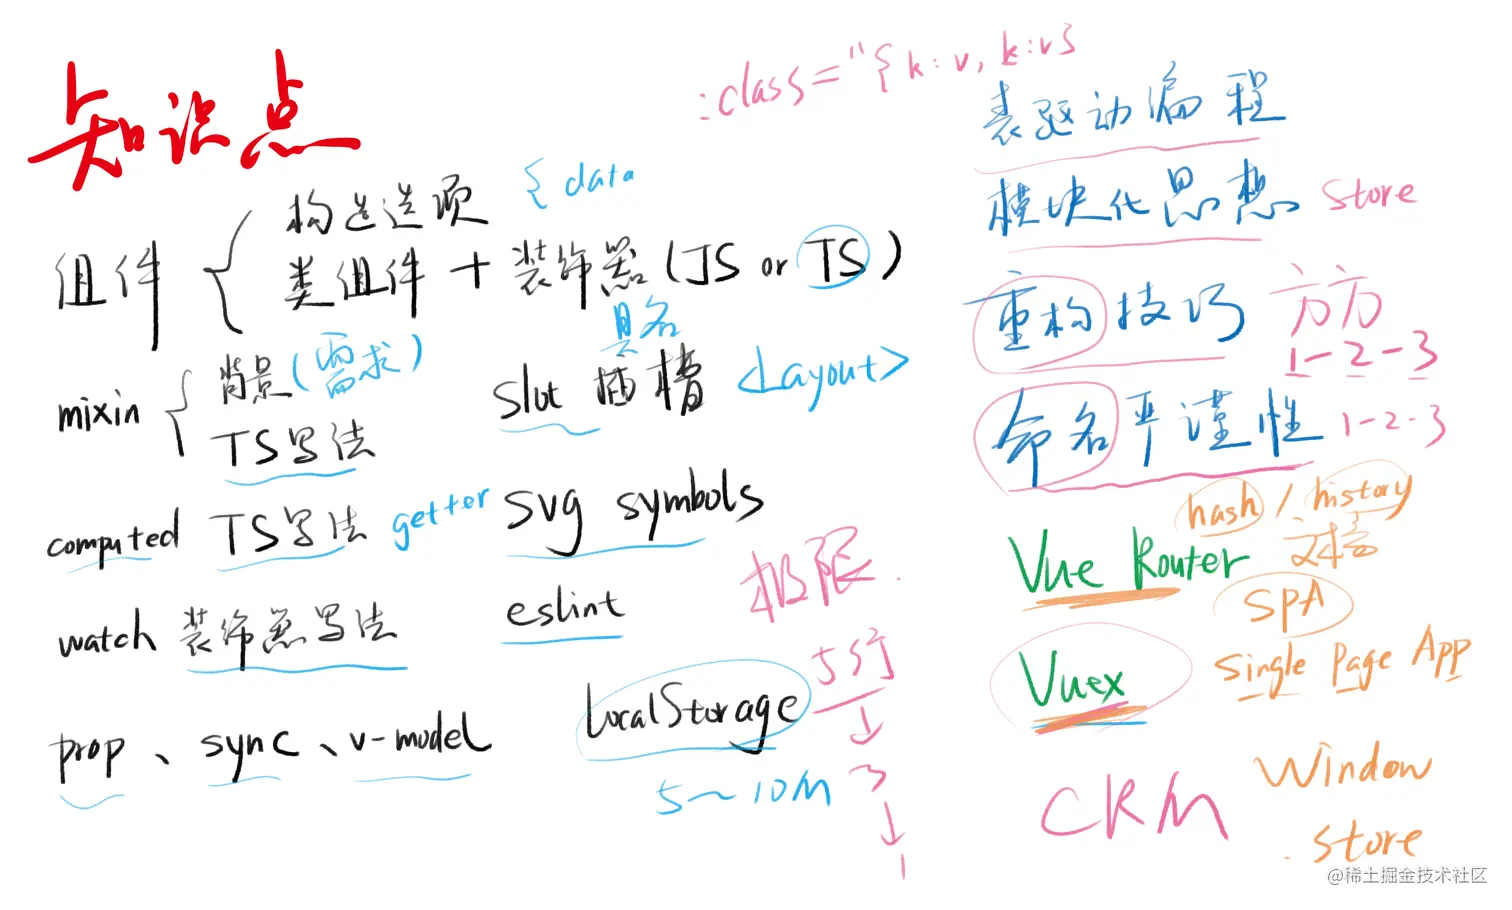 知识点
:class="{k:v, k:v}
组件
构造选项 { data
类组件 + 装饰器 (JS or TS)
mixin
背景 (需求)
TS写法
具名
slot 插槽 <Layout>
computed TS写法 getter
svg symbols
watch 装饰器写法
eslint
prop、sync、v-model
LocalStorage
5~10M
权限
5行
↓
3
↓
1
表驱动编程
模块化思想 store
重构技巧 方方
1-2-3
命名严谨性 1-2-3
hash / history
Vue Router
SPA
Vuex
Single Page App
CRM
Window
.store
@稀土掘金技术社区